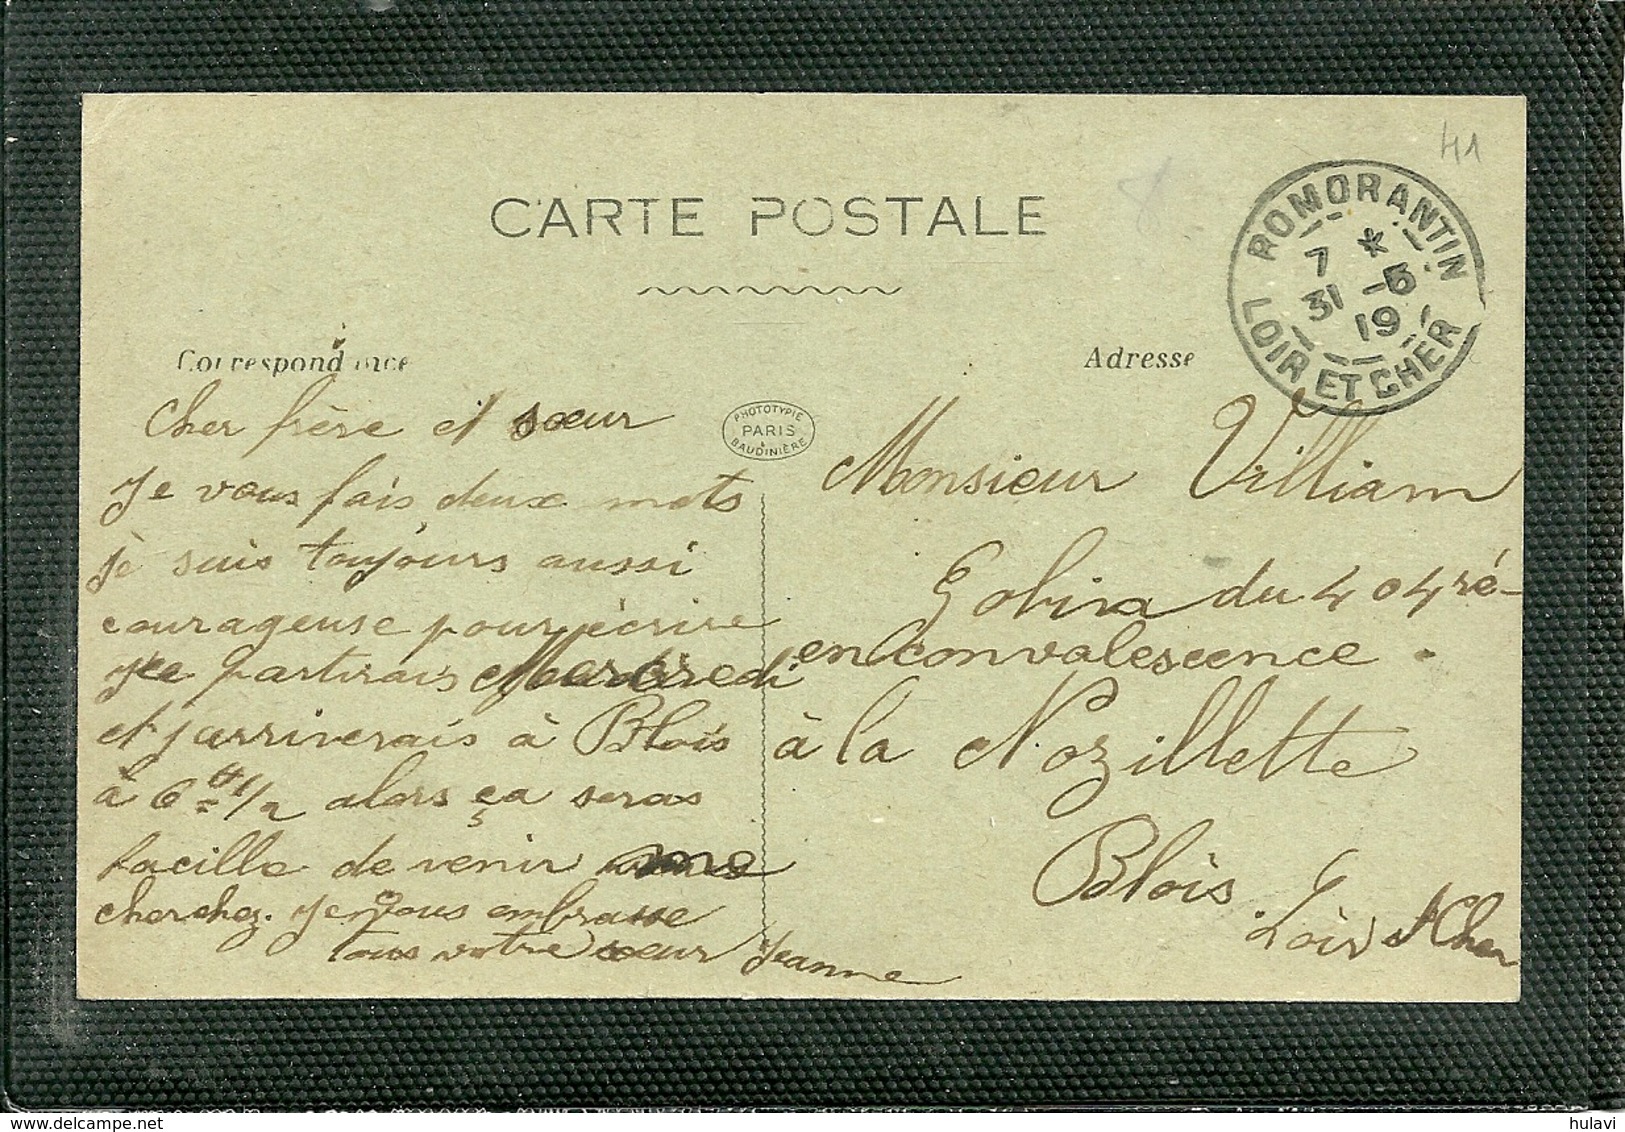 41
CARTE POSTALE
ROMORANTIN
7 *
31 -5
19
LOIR ET CHER
Correspondance
Adresse
PHOTOTYPIE
PARIS
BAUDINIÈRE
Cher frère et sœur
Je vous fais deux mots
je suis toujours aussi
courageuse pour écrire
Je partirais Mercredi
et j'arriverais à Blois
à 6 H 1/2 alors ça seras
facille de venir me
cherchez. Je vous embrasse
tous votre sœur Jeanne
Monsieur Villiam
Gobin du 404 ré-
en convalescence.
à la Nozillette
Blois.
Loir et Cher
delcampe.net
hulavi